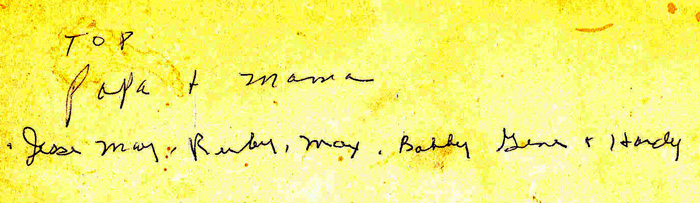 TOP
Papa + mama
Jesse May, Ruby, Max, Bobby Gene + Hardy